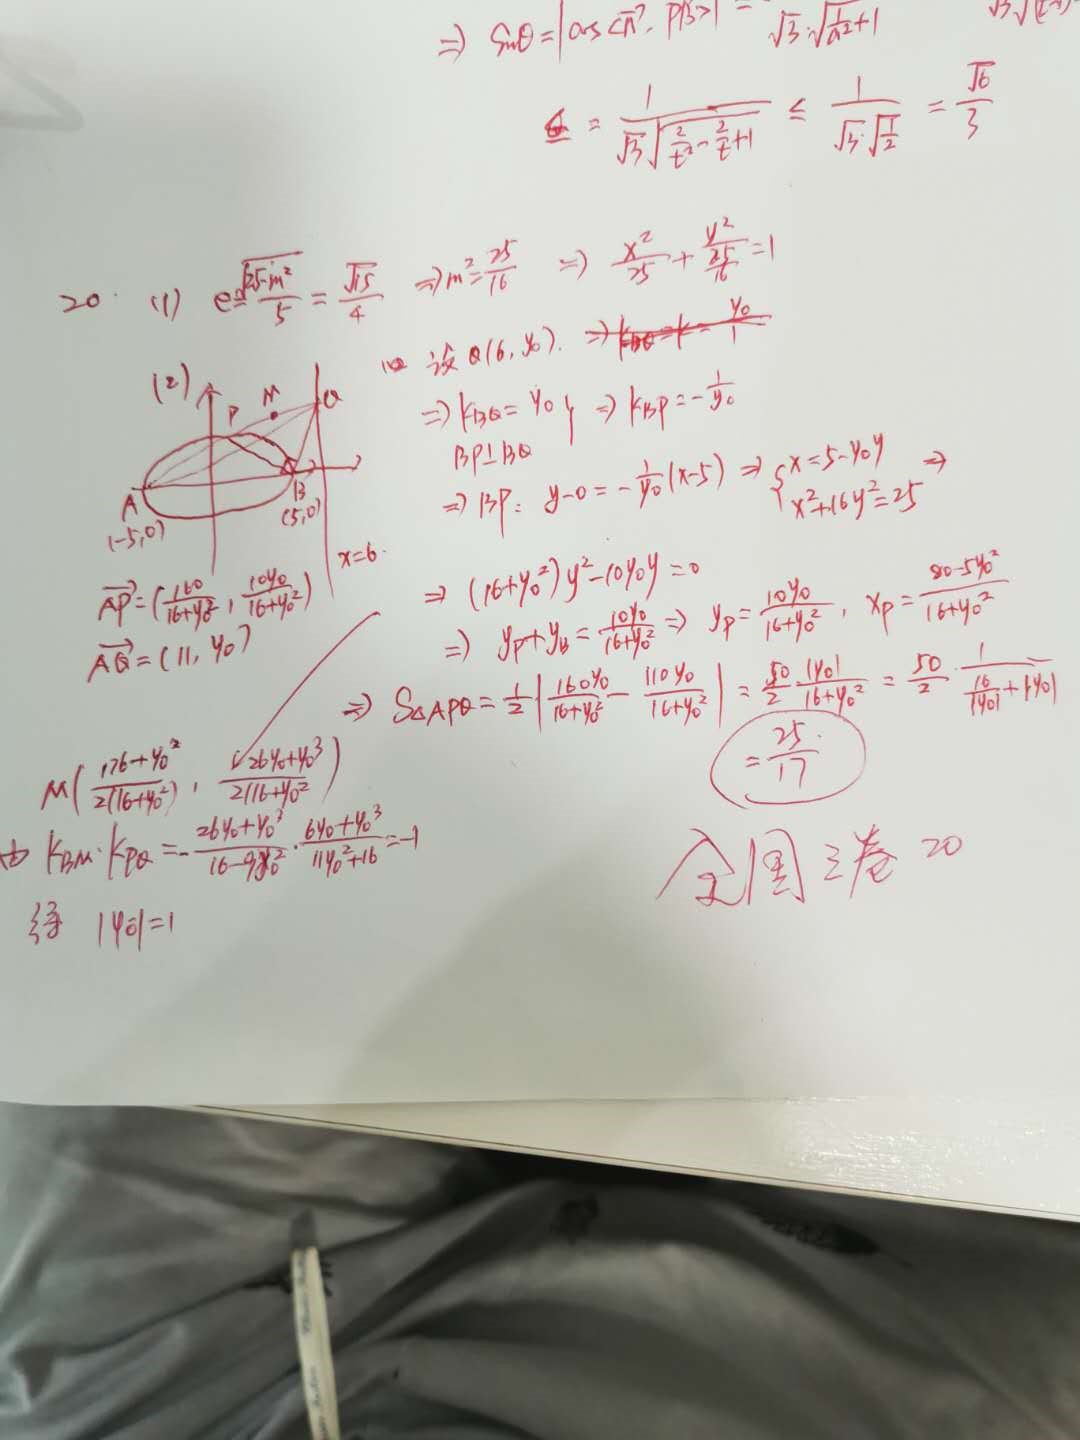 ⇒ sinθ = |cos<n⃗, PB⃗>| = √3·√(1/a²+1) √3√
= 1/(√3√(2/t²-2/t+1)) ≤ 1/(√3·√(1/2)) = √6/3
20. (1) e = √(25-m²)/5 = √15/4 ⇒ m² = 25/16 ⇒ x²/25 + y²/(25/16) = 1
(2) 设 Q(6, y₀). ⇒ k_BQ = k = y₀/1
P M Q
⇒ k_BQ = y₀ } ⇒ k_BP = -1/y₀
BP⊥BQ
A (-5,0) B (5,0)
⇒ BP: y-0 = -1/y₀(x-5) ⇒ { x=5-y₀y ⇒
x²+16y²=25
x=6.
⇒ (16+y₀²)y²-10y₀y=0
AP⃗=(160/(16+y₀²), 10y₀/(16+y₀²))
AQ⃗=(11, y₀)
⇒ y_P+y_B = 10y₀/(16+y₀²) ⇒ y_P = 10y₀/(16+y₀²), x_P = (80-5y₀²)/(16+y₀²)
⇒ S△APQ = 1/2|160y₀/(16+y₀²) - 110y₀/(16+y₀²)| = 50/2·|y₀|/(16+y₀²) = 50/2·1/(16/|y₀|+|y₀|)
= 25/17
M((176+y₀²)/(2(16+y₀²)), (26y₀+y₀³)/(2(16+y₀²))
由 k_BM·k_PQ = -(26y₀+y₀³)/(16-9y₀²)·(6y₀+y₀³)/(11y₀²+16) = -1
得 |y₀|=1
全国三卷 20